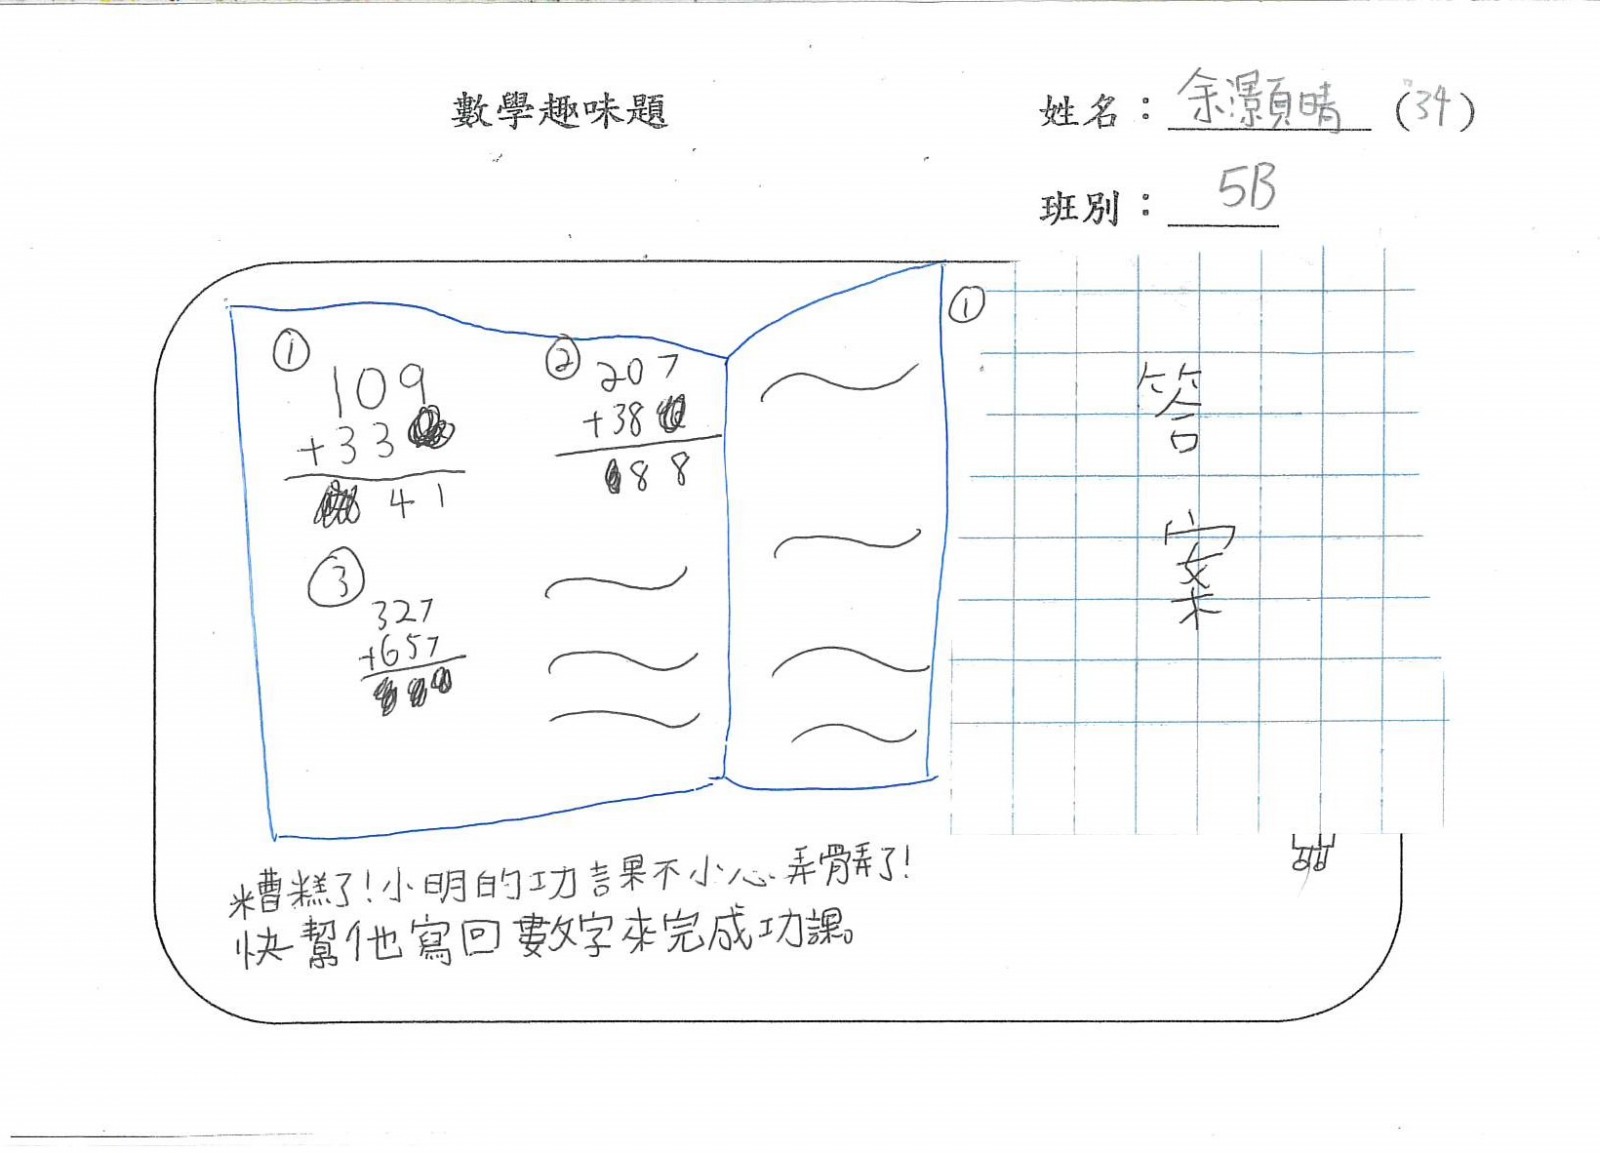 數學趣味題
姓名：余灝頎晴 (34)
班別：5B
①
109
+33
41
②
207
+38
88
③
327
+657
①
答
案
糟糕了!小明的功課不小心弄髒了!
快幫他寫回數字來完成功課。